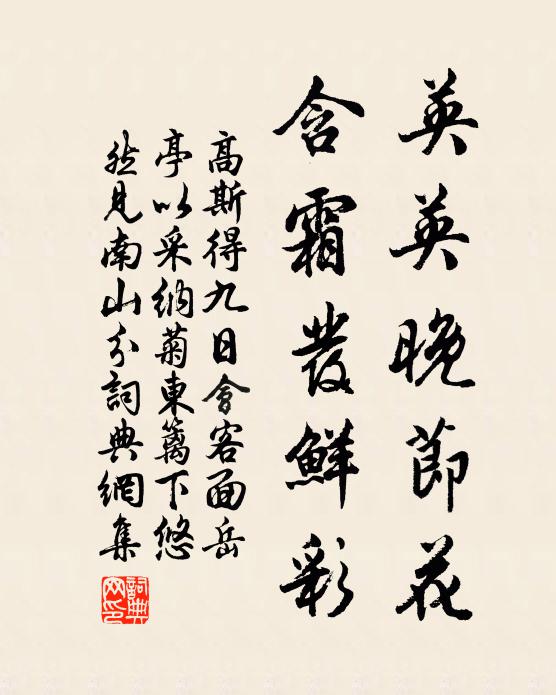 英英晚節花
含霜發鮮彩
高斯得九日會客面岳
亭以采納菊東籬下悠
然見南山分詞典網集
詞典網印